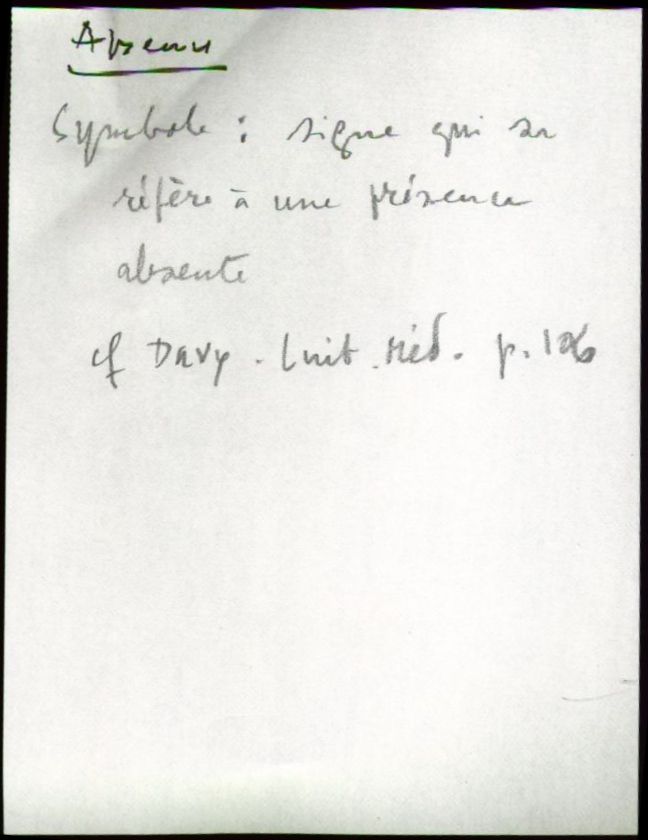 Absence
Symbole : signe qui se
réfère à une présence
absente
cf Davy . Init . Méd . p. 106